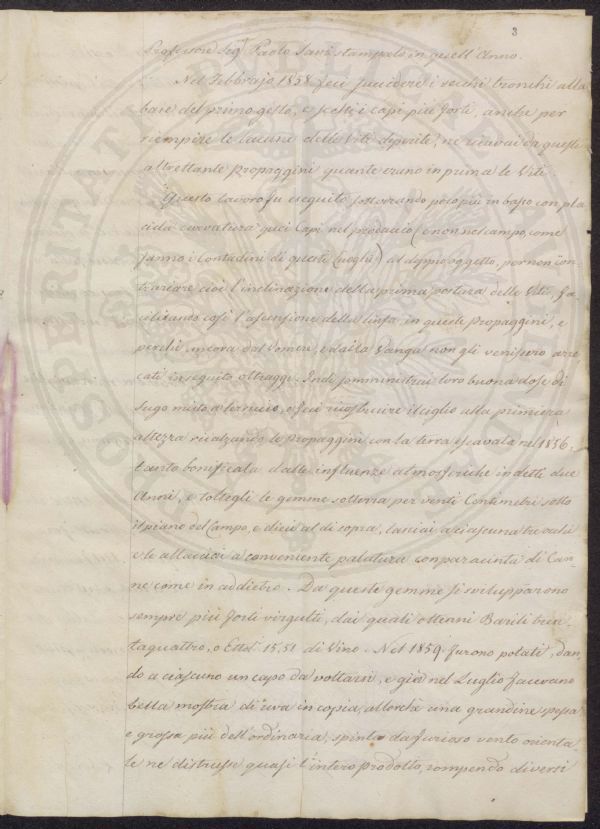 3
Professore Sigr Paolo Savi stampato in quell'Anno.
Nel Febbrajo 1858 feci succidere i vecchi tronchi alla
base del primo getto, e scelti i capi più forti, anche per
riempire le lacune delle Viti disperite, ne ricavai da questi
altrettante propaggini quante erano in prima le Viti.
Questo lavoro fu eseguito sotterrando poco più in basso con pla
cida curvatura quei Capi nel prodaccio (e non nel campo, come
fanno i Contadini di questi luoghi) al doppio oggetto, per non con
trariare cioè l'inclinazione della prima postura delle Viti, fa
cilitando così l'ascensione della linfa in queste propaggini, e
perchè ancora dal Vomere, e dalla Vanga non gli venissero arre
cati in seguito oltraggi. Indi somministrai loro buona dose di
sugo misto a terriccio, e feci ricostruire il ciglio alla primiera
altezza ricalzando le propaggini con la terra escavata nel 1856
tanto bonificata dalle influenze atmosferiche in detti due
Anni, e toltegli le gemme sotterra per venti Centimetri sotto
il piano del Campo, e dieci al di sopra, lasciai a ciascuna tre occhi
e le allacciai a conveniente palatura con paracinta di Can
ne come in addietro. Da queste gemme si svilupparono
sempre più forti virgulti, dai quali ottenni Barili tren
taquattro, o Ettol. 15.51 di Vino. Nel 1859 furono potati, dan
do a ciascuno un capo da voltarsi, e già nel Luglio facevano
bella mostra di uva in copia, allorchè una grandine spessa
e grossa più dell'ordinaria, spinta da furioso vento orienta
le ne distrusse quasi l'intero prodotto, rompendo diversi